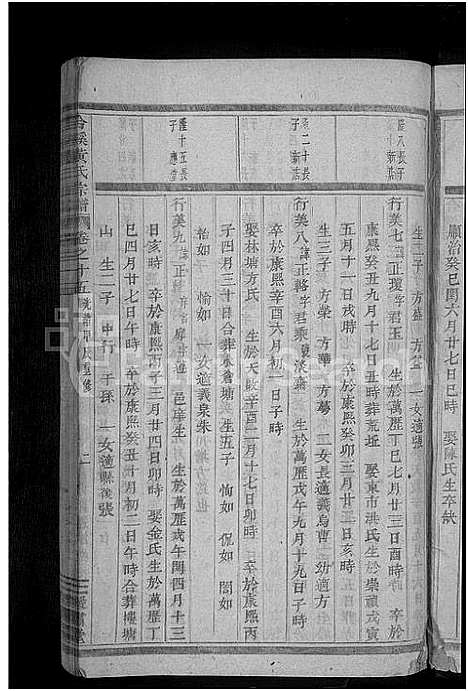 順治癸巳閏六月十七日巳時 娶陳氏生卒缺
生二子 方盛 方益 一女適張
行美七 諱正瓊字君玉 生於萬歷丁巳七月廿三日酉時 卒於
康熙癸丑九月十七日丑時葬荒坵 娶東市洪氏生於崇禎戊寅
五月十一日戌時 卒於康熙癸卯三月廿三日亥時
生三子 方榮 方華 方蕚 二女長適義烏曹 幼適方
行美八 諱正輅字君乘號淡齋 生於萬歷戊午九月十九日子時
卒於康熙辛酉六月初一日子時
娶林塘方氏 生於天啟辛酉二月十七日卯時 卒於康熙丙
子四月三十日合葬倉塘 生五子 恂如 侃如 誾如
怡如 愉如 一女適義泉朱
行美九 諱正 邑庠生 生於萬歷戊午閏四月十三
日亥時 卒於康熙丙子三月廿四日卯時 娶金氏生於萬歷丁
巳四月廿七日午時 卒於康熙癸丑十月初二日午時合葬樓塘
山 生二子 中行 干孫 一女適縣後張
合溪黃氏宗譜 卷之十五